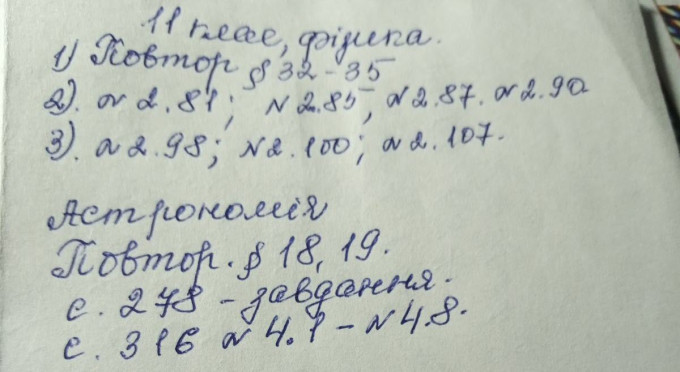 11 клас, фізика.
1) Повтор § 32-35
2). № 2.81; № 2.85, № 2.87. № 2.90
3). № 2.98; № 2.100; № 2.107.
Астрономія
Повтор. § 18, 19.
с. 278 - завдання.
с. 316 № 4.1 - № 4.8.